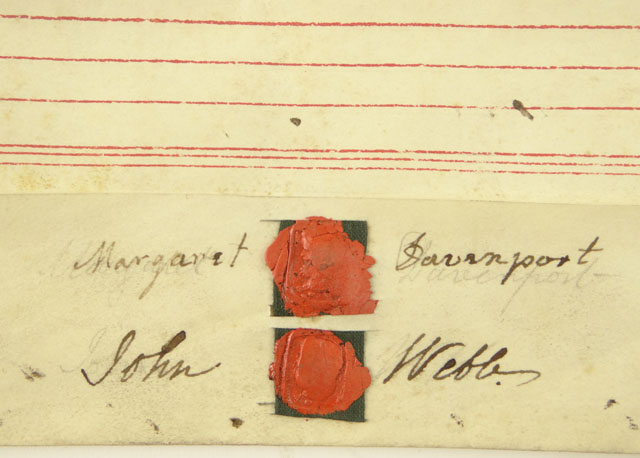 Margaret Davenport
John Webb